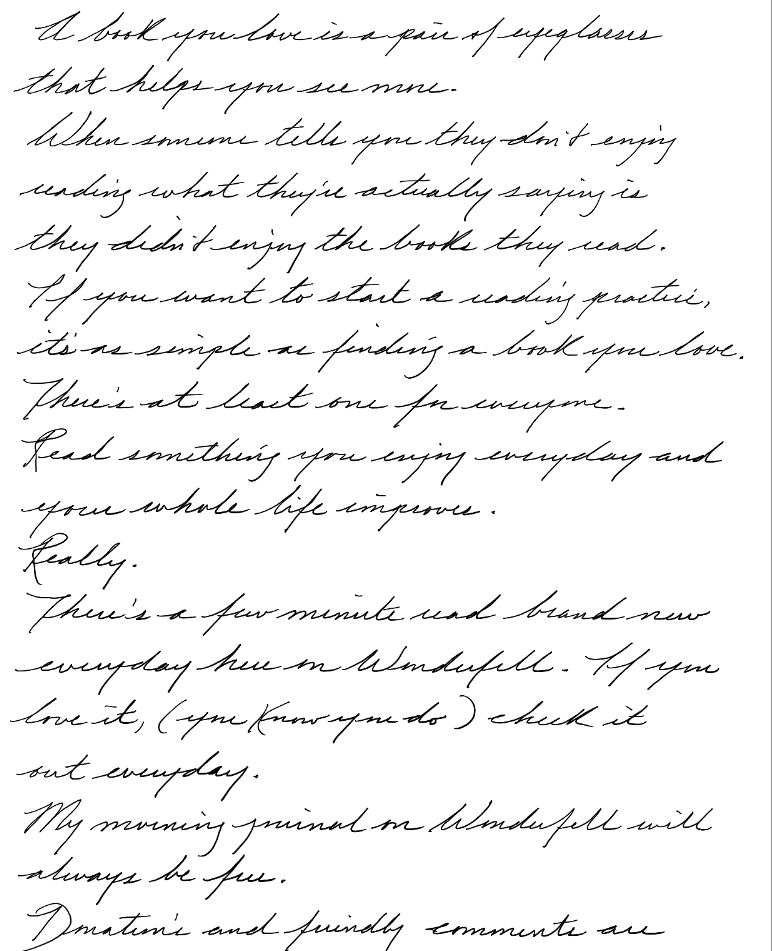 A book you love is a pair of eyeglasses
that helps you see more.
When someone tells you they don't enjoy
reading what they're actually saying is
they didn't enjoy the books they read.
If you want to start a reading practice,
it's as simple as finding a book you love.
There's at least one for everyone.
Read something you enjoy everyday and
your whole life improves.
Really.
There's a few minute read brand new
everyday here on Wonderfell. If you
love it, (you know you do) check it
out everyday.
My morning journal on Wonderfell will
always be free.
Donation's and friendly comments are